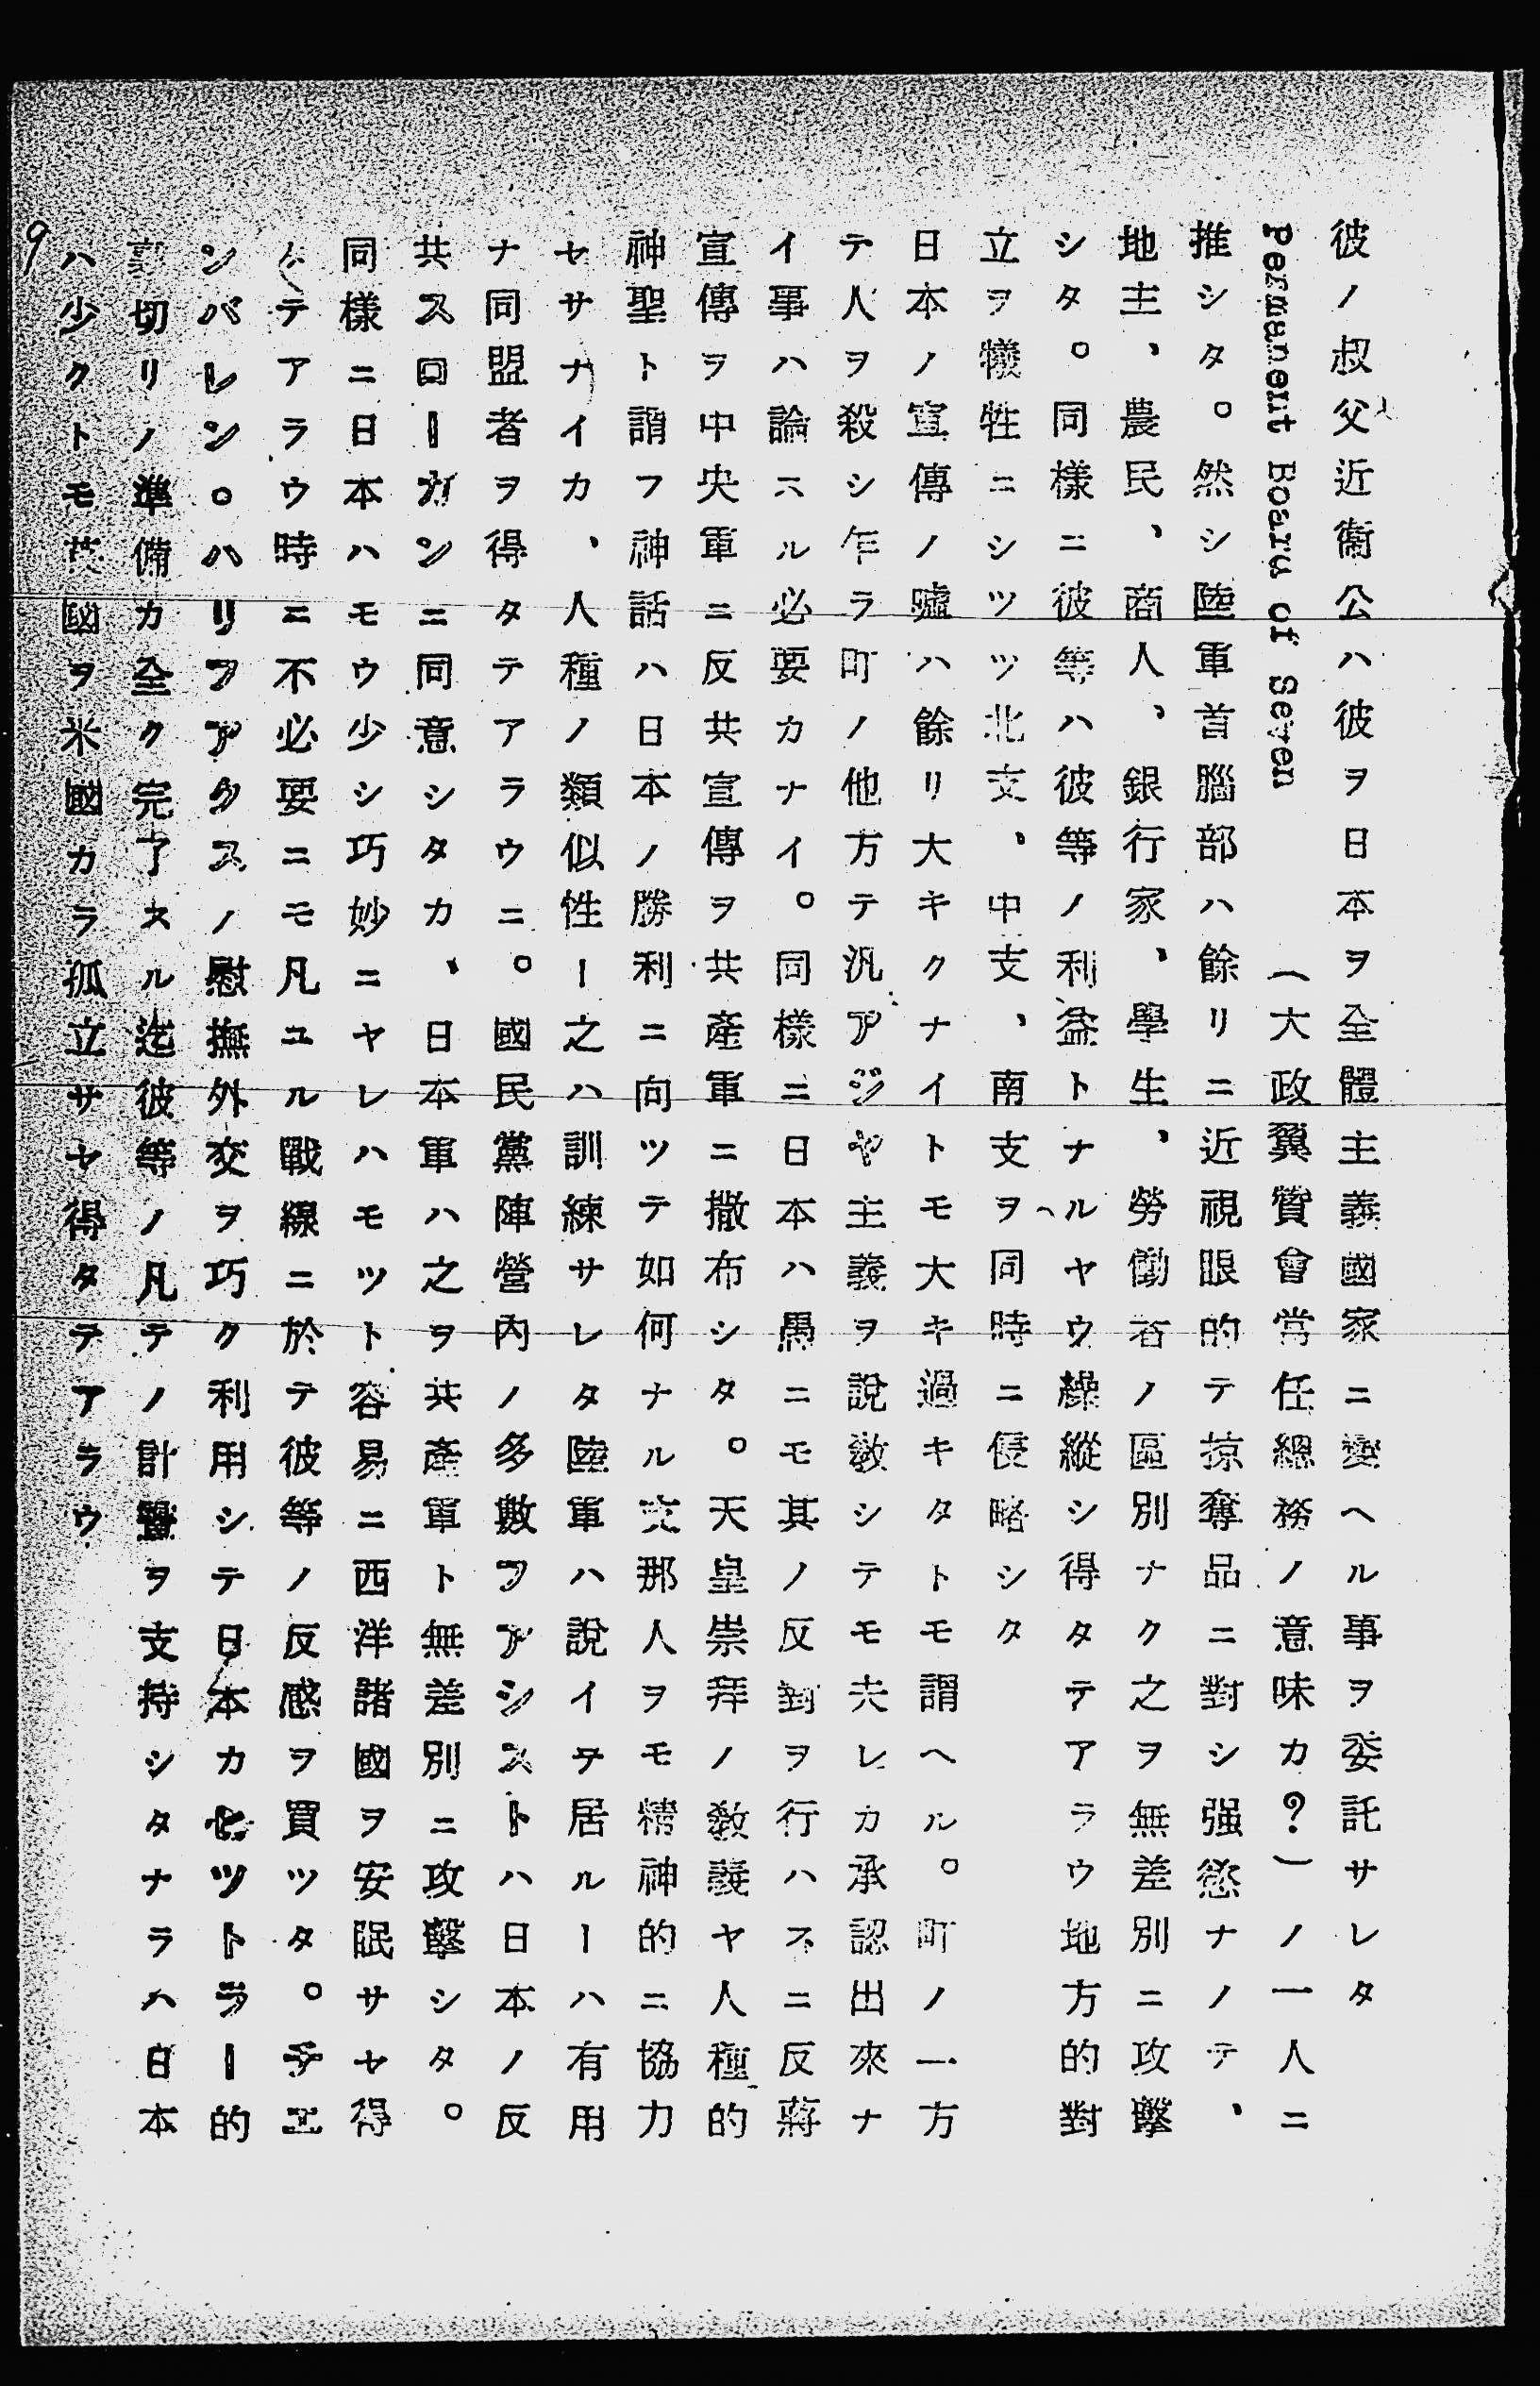 彼ノ叔父近衞公ハ彼ヲ日本ヲ全體主義國家ニ變ヘル事ヲ委託サレタ
Permanent Board of Seven（大政翼贊會常任總務ノ意味カ?）ノ一人ニ
推シタ。然シ陸軍首腦部ハ餘リニ近視眼的テ掠奪品ニ對シ强慾ナノテ、
地主、農民、商人、銀行家、學生、勞働者ノ區別ナク之ヲ無差別ニ攻擊
シタ。同樣ニ彼等ハ彼等ノ利益トナルヤウ繰縱シ得タテアラウ地方的對
立ヲ犧牲ニシツツ北支、中支、南支ヲ同時ニ侵略シタ
日本ノ宣傳ノ噓ハ餘リ大キクナイトモ大キ過キタトモ謂ヘル。町ノ一方
テ人ヲ殺シ乍ラ町ノ他方テ汎アジヤ主義ヲ說敎シテモ夫レカ承認出來ナ
イ事ハ論スル必要カナイ。同樣ニ日本ハ愚ニモ其ノ反對ヲ行ハスニ反蔣
宣傳ヲ中央軍ニ反共宣傳ヲ共產軍ニ撒布シタ。天皇崇拜ノ敎議ヤ人種的
神聖ト謂フ神話ハ日本ノ勝利ニ向ツテ如何ナル支那人ヲモ精神的ニ協力
セサナイカ、人種ノ類似性ー之ハ訓練サレタ陸軍ハ說イテ居ルーハ有用
ナ同盟者ヲ得タテアラウニ。國民黨陣營內ノ多數フアシストハ日本ノ反
共スローガンニ同意シタカ、日本軍ハ之ヲ共產軍ト無差別ニ攻擊シタ。
同樣ニ日本ハモウ少シ巧妙ニヤレハモツト容易ニ西洋諸國ヲ安眠サヤ得
タテアラウ時ニ不必要ニモ凡ユル戰線ニ於テ彼等ノ反感ヲ買ツタ。チエ
ンバレン。ハリフアクスノ慰撫外交ヲ巧ク利用シテ日本カセツトラー的
裏切リノ準備カ全ク完了スル迄彼等ノ凡テノ計畫ヲ支持シタナラハ日本
ハ少クトモ英國ヲ米國カラ孤立サヤ得タテアラウ
9